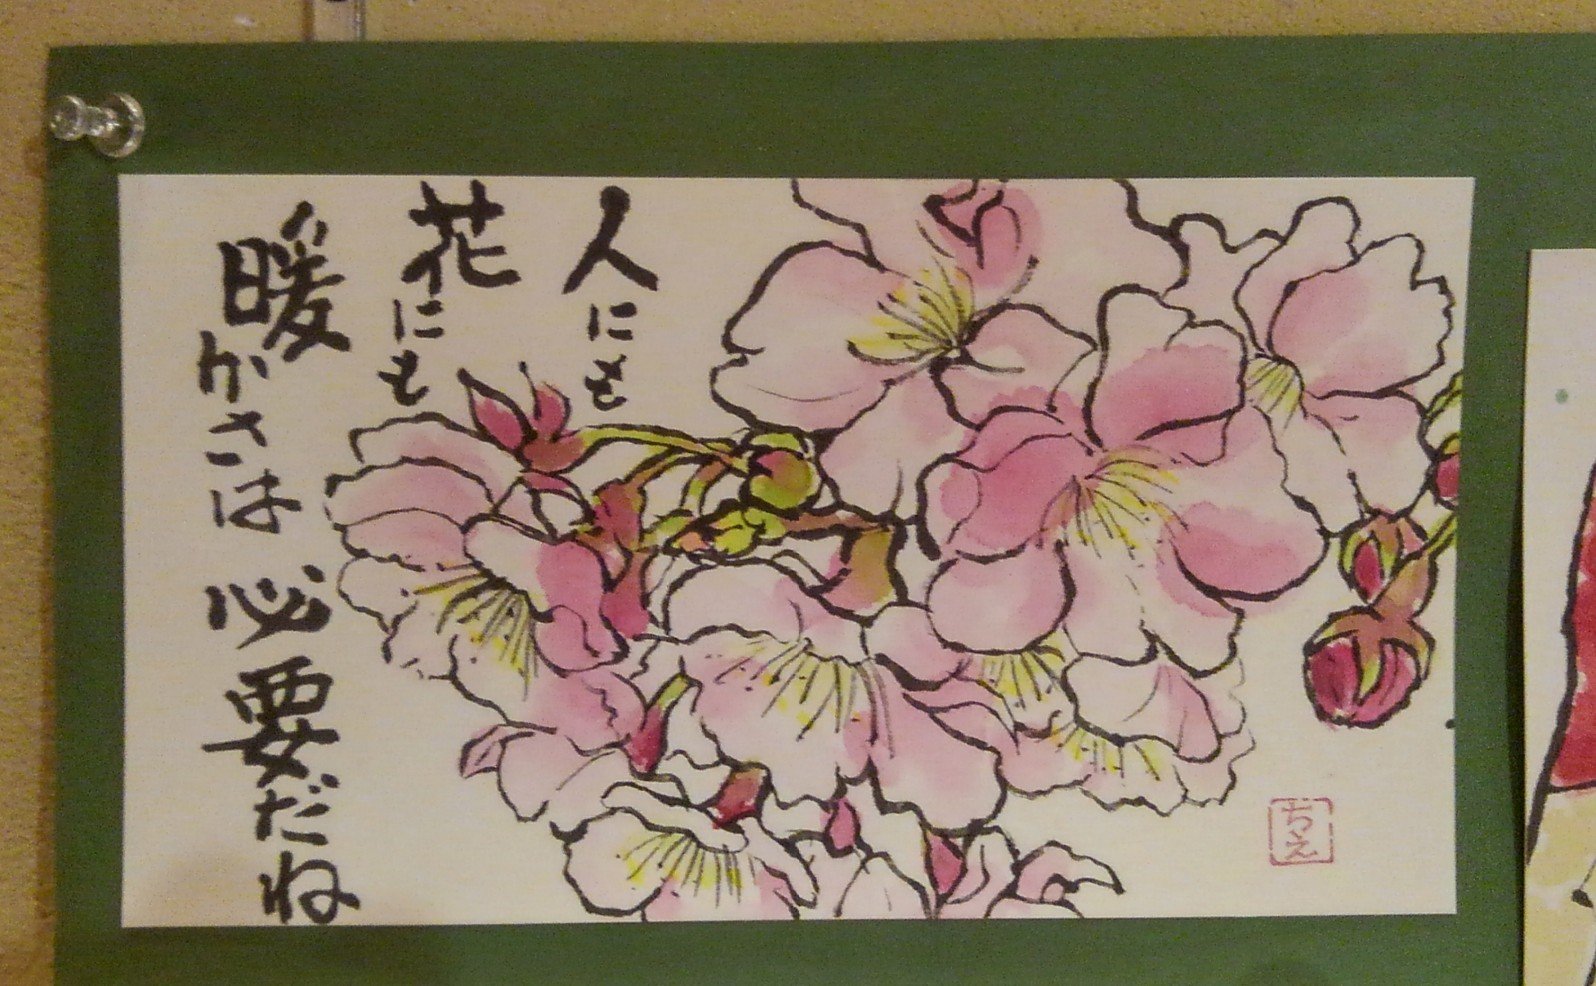 人にも
花にも
暖かさは必要だね
ちえ